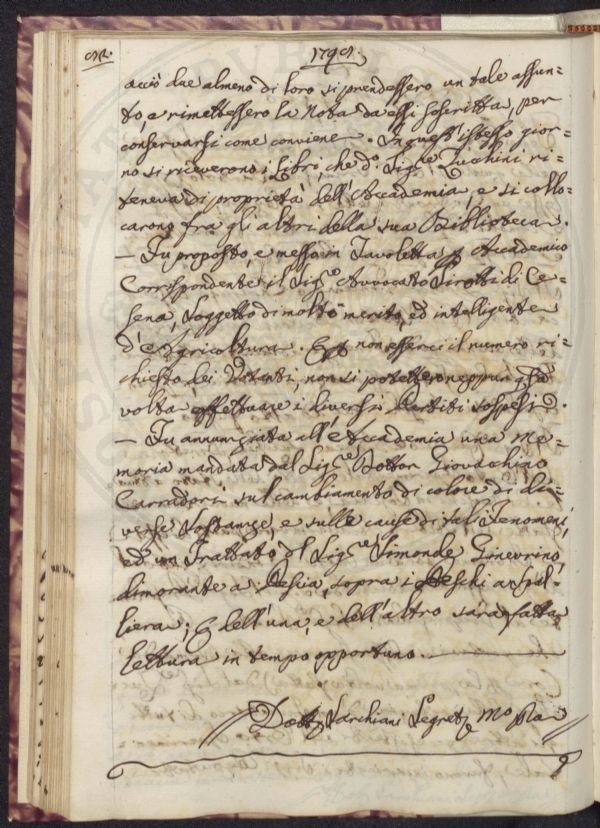 1795.
acciò due almeno di loro si prendessero un tale assun=
to, e rimettessero la Nota da essi soscritta, per
conservarsi come conviene. In quest'istesso gior=
no si riceverono i Libri, che d.º Sig.re Zucchini ri=
teneva di proprietà dell'Accademia, e si collo=
carono fra gli altri della sua Biblioteca.
— Fu proposto, e messo in Tavoletta p Accademico
Corrispondente il Sig.e Avvocato di Ce=
sena, soggetto di molto merito, ed intelligente
d'Agricoltura. non esserci il numero ri=
chiesto dei Votanti, non si potettero neppur q.sta
volta effettuare i diversi Partiti sospesi.
— Fu annunziata all'Accademia una Me=
moria mandata dal Sig.re Dottor Giovachino
Carradori sul cambiamento di colore di di=
verse Sostanze, e sulle cause di tali Fenomeni,
ed un Trattato del Sig.re Simonde Ginevrino,
dimorante a Pescia, sopra i Peschi a spal=
liera; e dell'una, e dell'altro sarà fatta
lettura in tempo opportuno.
Dott. Sarchiani Segret.